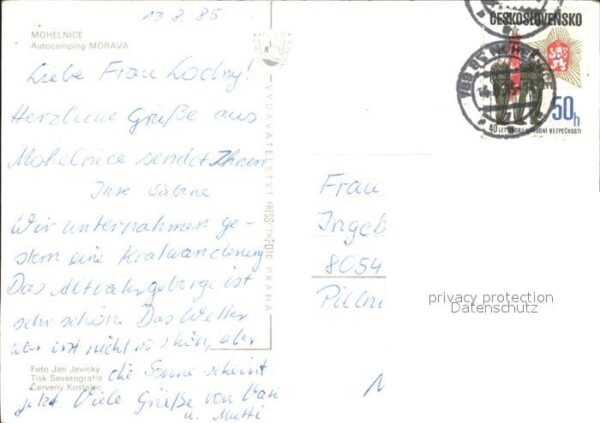 13.8.85
MOHELNICE
Autocamping MORAVA
Liebe Frau Lodny!
Herzliche Grüße aus
Mohelnice sendet Ihnen
Ihre Sabine
Wir unternahmen ge-
stern eine Kratwanderung
Das Altvatergebirge ist
sehr schön. Das Wetter
war erst nicht so schön, aber
die Sonne scheint
jetzt. Viele Grüße von Vati
u. Mutti
Foto Jan Jevický
Tisk Severografia
Červený Kostelec
VYDAVATELSTVÍ PRESSFOTO PRAHA
ČESKOSLOVENSKO
50h
40 LET SBORU NÁRODNÍ BEZPEČNOSTI
789 85 MOHELNICE
Frau
Ingeb
8054
Pillni
privacy protection
Datenschutz